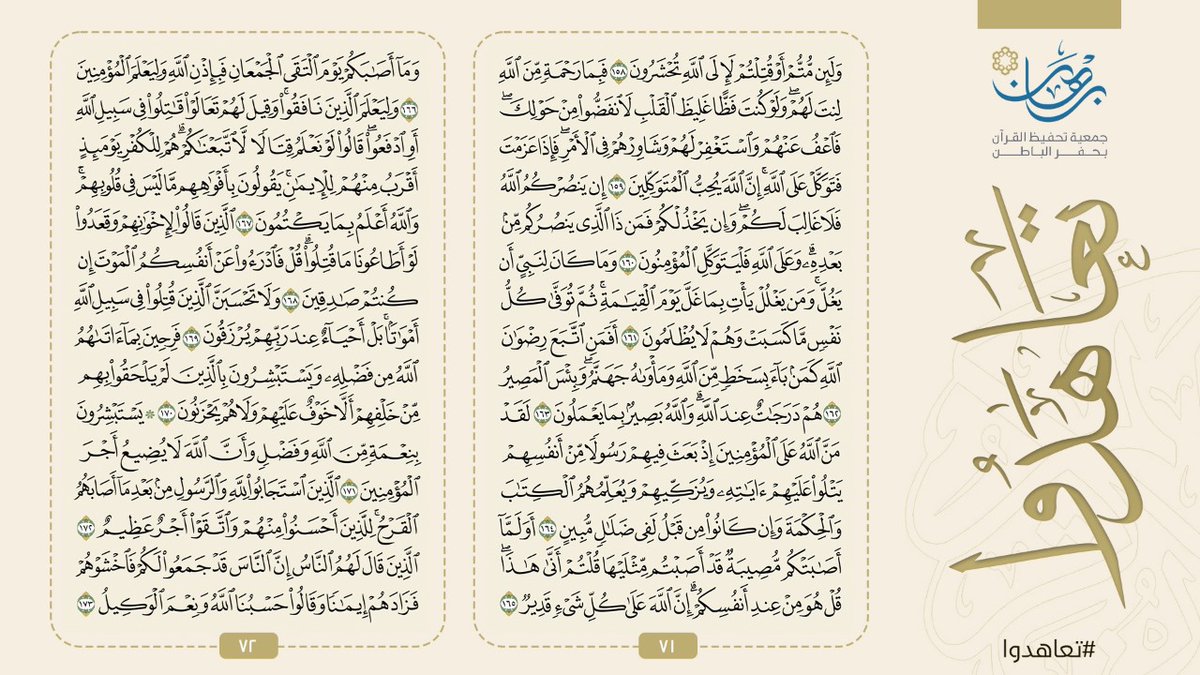 برهان
جمعية تحفيظ القرآن
بحفر الباطن
تعاهدوا
#تعاهدوا
وَلَئِن مُّتُّمْ أَوْ قُتِلْتُمْ لَإِلَى ٱللَّهِ تُحْشَرُونَ ١٥٨ فَبِمَا رَحْمَةٍ مِّنَ ٱللَّهِ
لِنتَ لَهُمْۖ وَلَوْ كُنتَ فَظًّا غَلِيظَ ٱلْقَلْبِ لَٱنفَضُّوا۟ مِنْ حَوْلِكَۖ
فَٱعْفُ عَنْهُمْ وَٱسْتَغْفِرْ لَهُمْ وَشَاوِرْهُمْ فِى ٱلْأَمْرِۖ فَإِذَا عَزَمْتَ
فَتَوَكَّلْ عَلَى ٱللَّهِۚ إِنَّ ٱللَّهَ يُحِبُّ ٱلْمُتَوَكِّلِينَ ١٥٩ إِن يَنصُرْكُمُ ٱللَّهُ
فَلَا غَالِبَ لَكُمْۖ وَإِن يَخْذُلْكُمْ فَمَن ذَا ٱلَّذِى يَنصُرُكُم مِّنۢ
بَعْدِهِۦۗ وَعَلَى ٱللَّهِ فَلْيَتَوَكَّلِ ٱلْمُؤْمِنُونَ ١٦٠ وَمَا كَانَ لِنَبِىٍّ أَن
يَغُلَّۚ وَمَن يَغْلُلْ يَأْتِ بِمَا غَلَّ يَوْمَ ٱلْقِيَٰمَةِۚ ثُمَّ تُوَفَّىٰ كُلُّ
نَفْسٍ مَّا كَسَبَتْ وَهُمْ لَا يُظْلَمُونَ ١٦١ أَفَمَنِ ٱتَّبَعَ رِضْوَٰنَ
ٱللَّهِ كَمَنۢ بَآءَ بِسَخَطٍ مِّنَ ٱللَّهِ وَمَأْوَىٰهُ جَهَنَّمُۚ وَبِئْسَ ٱلْمَصِيرُ
١٦٢ هُمْ دَرَجَٰتٌ عِندَ ٱللَّهِۗ وَٱللَّهُ بَصِيرٌۢ بِمَا يَعْمَلُونَ ١٦٣ لَقَدْ
مَنَّ ٱللَّهُ عَلَى ٱلْمُؤْمِنِينَ إِذْ بَعَثَ فِيهِمْ رَسُولًا مِّنْ أَنفُسِهِمْ
يَتْلُوا۟ عَلَيْهِمْ ءَايَٰتِهِۦ وَيُزَكِّيهِمْ وَيُعَلِّمُهُمُ ٱلْكِتَٰبَ
وَٱلْحِكْمَةَ وَإِن كَانُوا۟ مِن قَبْلُ لَفِى ضَلَٰلٍ مُّبِينٍ ١٦٤ أَوَلَمَّآ
أَصَٰبَتْكُم مُّصِيبَةٌ قَدْ أَصَبْتُم مِّثْلَيْهَا قُلْتُمْ أَنَّىٰ هَٰذَاۖ
قُلْ هُوَ مِنْ عِندِ أَنفُسِكُمْۗ إِنَّ ٱللَّهَ عَلَىٰ كُلِّ شَىْءٍ قَدِيرٌ ١٦٥
٧١
وَمَآ أَصَٰبَكُمْ يَوْمَ ٱلْتَقَى ٱلْجَمْعَانِ فَبِإِذْنِ ٱللَّهِ وَلِيَعْلَمَ ٱلْمُؤْمِنِينَ
١٦٦ وَلِيَعْلَمَ ٱلَّذِينَ نَافَقُوا۟ۚ وَقِيلَ لَهُمْ تَعَالَوْا۟ قَٰتِلُوا۟ فِى سَبِيلِ ٱللَّهِ
أَوِ ٱدْفَعُوا۟ۖ قَالُوا۟ لَوْ نَعْلَمُ قِتَالًا لَّٱتَّبَعْنَٰكُمْۗ هُمْ لِلْكُفْرِ يَوْمَئِذٍ
أَقْرَبُ مِنْهُمْ لِلْإِيمَٰنِۚ يَقُولُونَ بِأَفْوَٰهِهِم مَّا لَيْسَ فِى قُلُوبِهِمْۗ
وَٱللَّهُ أَعْلَمُ بِمَا يَكْتُمُونَ ١٦٧ ٱلَّذِينَ قَالُوا۟ لِإِخْوَٰنِهِمْ وَقَعَدُوا۟
لَوْ أَطَاعُونَا مَا قُتِلُوا۟ۗ قُلْ فَٱدْرَءُوا۟ عَنْ أَنفُسِكُمُ ٱلْمَوْتَ إِن
كُنتُمْ صَٰدِقِينَ ١٦٨ وَلَا تَحْسَبَنَّ ٱلَّذِينَ قُتِلُوا۟ فِى سَبِيلِ ٱللَّهِ
أَمْوَٰتًۢاۚ بَلْ أَحْيَآءٌ عِندَ رَبِّهِمْ يُرْزَقُونَ ١٦٩ فَرِحِينَ بِمَآ ءَاتَىٰهُمُ
ٱللَّهُ مِن فَضْلِهِۦ وَيَسْتَبْشِرُونَ بِٱلَّذِينَ لَمْ يَلْحَقُوا۟ بِهِم
مِّنْ خَلْفِهِمْ أَلَّا خَوْفٌ عَلَيْهِمْ وَلَا هُمْ يَحْزَنُونَ ١٧٠ ۞ يَسْتَبْشِرُونَ
بِنِعْمَةٍ مِّنَ ٱللَّهِ وَفَضْلٍ وَأَنَّ ٱللَّهَ لَا يُضِيعُ أَجْرَ
ٱلْمُؤْمِنِينَ ١٧١ ٱلَّذِينَ ٱسْتَجَابُوا۟ لِلَّهِ وَٱلرَّسُولِ مِنۢ بَعْدِ مَآ أَصَابَهُمُ
ٱلْقَرْحُۚ لِلَّذِينَ أَحْسَنُوا۟ مِنْهُمْ وَٱتَّقَوْا۟ أَجْرٌ عَظِيمٌ ١٧٢
ٱلَّذِينَ قَالَ لَهُمُ ٱلنَّاسُ إِنَّ ٱلنَّاسَ قَدْ جَمَعُوا۟ لَكُمْ فَٱخْشَوْهُمْ
فَزَادَهُمْ إِيمَٰنًا وَقَالُوا۟ حَسْبُنَا ٱللَّهُ وَنِعْمَ ٱلْوَكِيلُ ١٧٣
٧٢